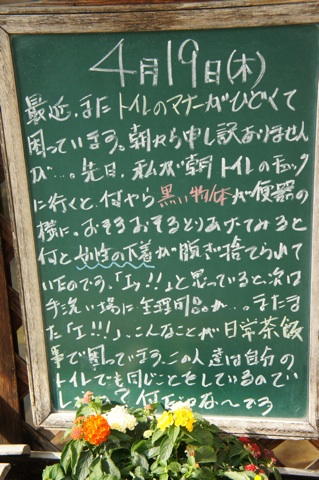 4月19日(木)
最近、またトイレのマナーがひどくて
困っています。朝から申し訳ありません
が…。先日、私が朝トイレのチェック
に行くと、何やら黒い物体が便器の
横に。おそるおそるとりあげてみると
何と女性の下着が脱ぎ捨てられて
いたのです。「エッ!!」と思っていると、次は
手洗い場に生理用品が…。またまた
「エ!!!」、こんなことが日常茶飯
事で困っています。この人達は自分の
トイレでも同じことをしているので
しょうか?何だかな〜です